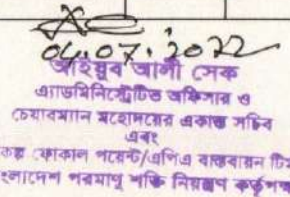 04.07.2022
আইয়ুব আলী সেক
এ্যাডমিনিস্ট্রেটিভ অফিসার ও
চেয়ারম্যান মহোদয়ের একান্ত সচিব
এবং
ফোকাল পয়েন্ট/এপিএ বাস্তবায়ন টি
বাংলাদেশ পরমাণু শক্তি নিয়ন্ত্রণ কর্তৃপক্ষ